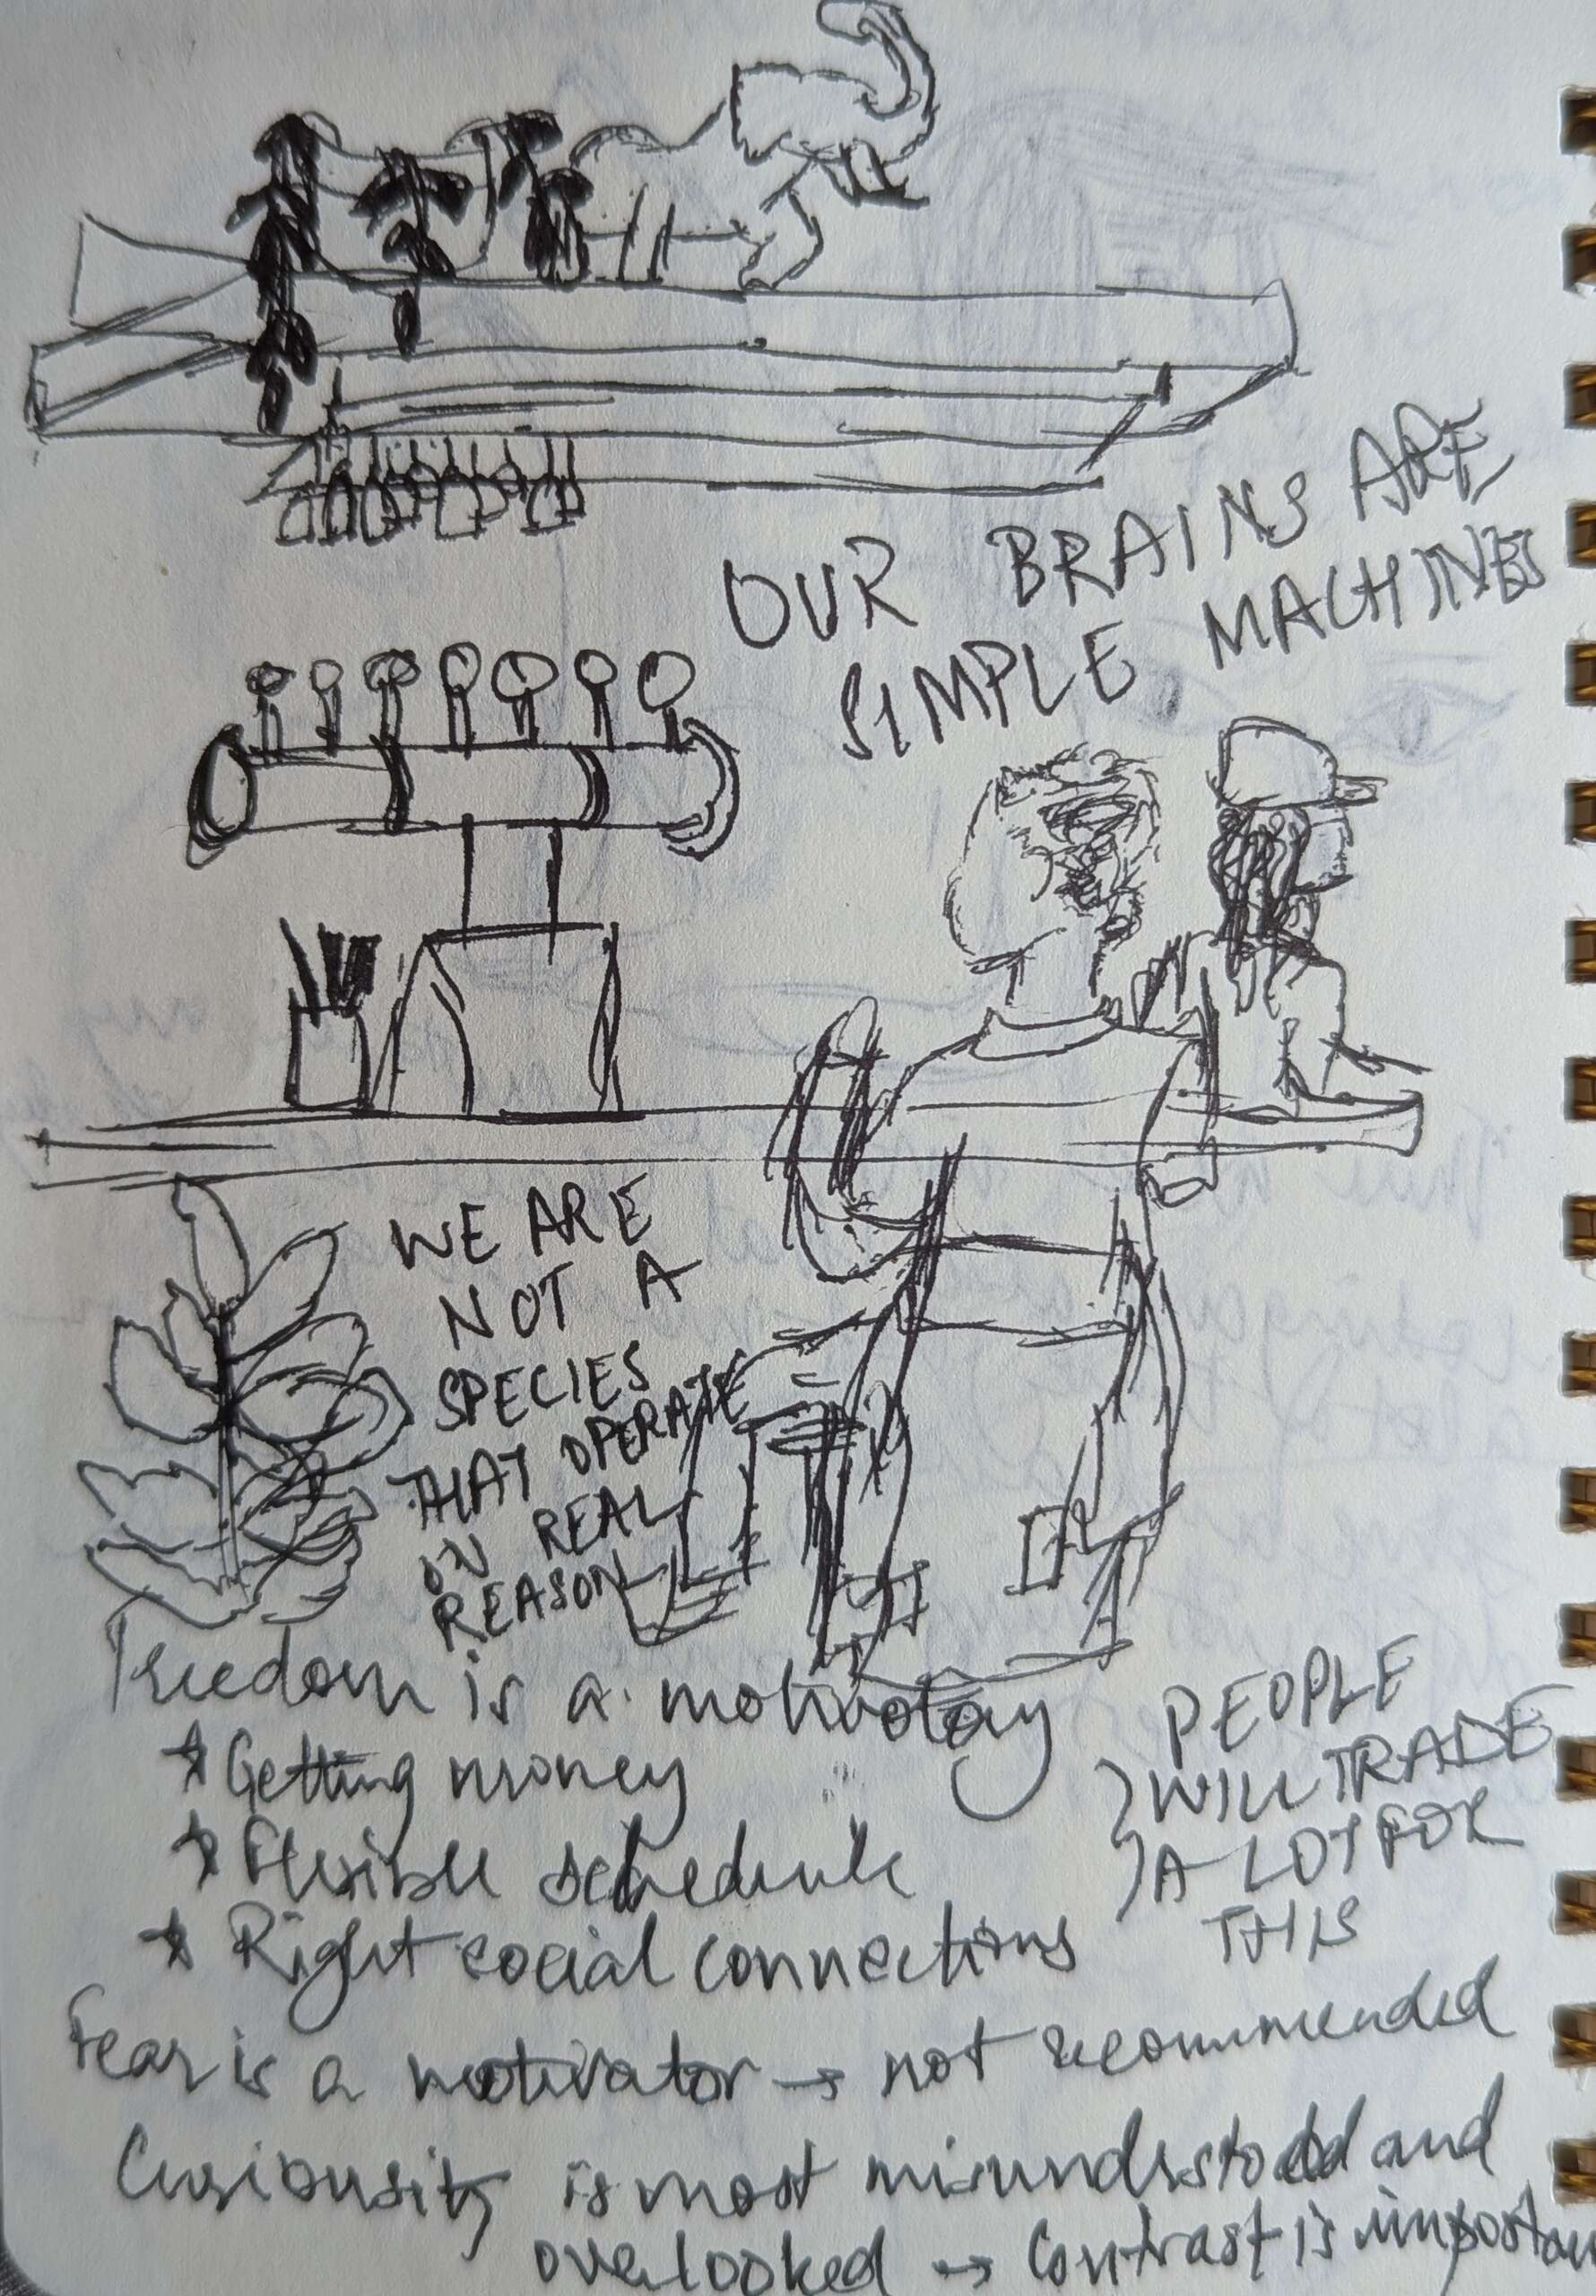 OUR BRAINS ARE
SIMPLE MACHINES
WE ARE
NOT A
SPECIES
THAT OPERATE
ON REAL
REASON
Freedom is a
* Getting money
* Flexible schedule
* Right social connections
PEOPLE
WILL TRADE
A LOT FOR
THIS
Fear is a motivator → not recommended
Curiousity is most misunderstood and
overlooked → Contrast is important